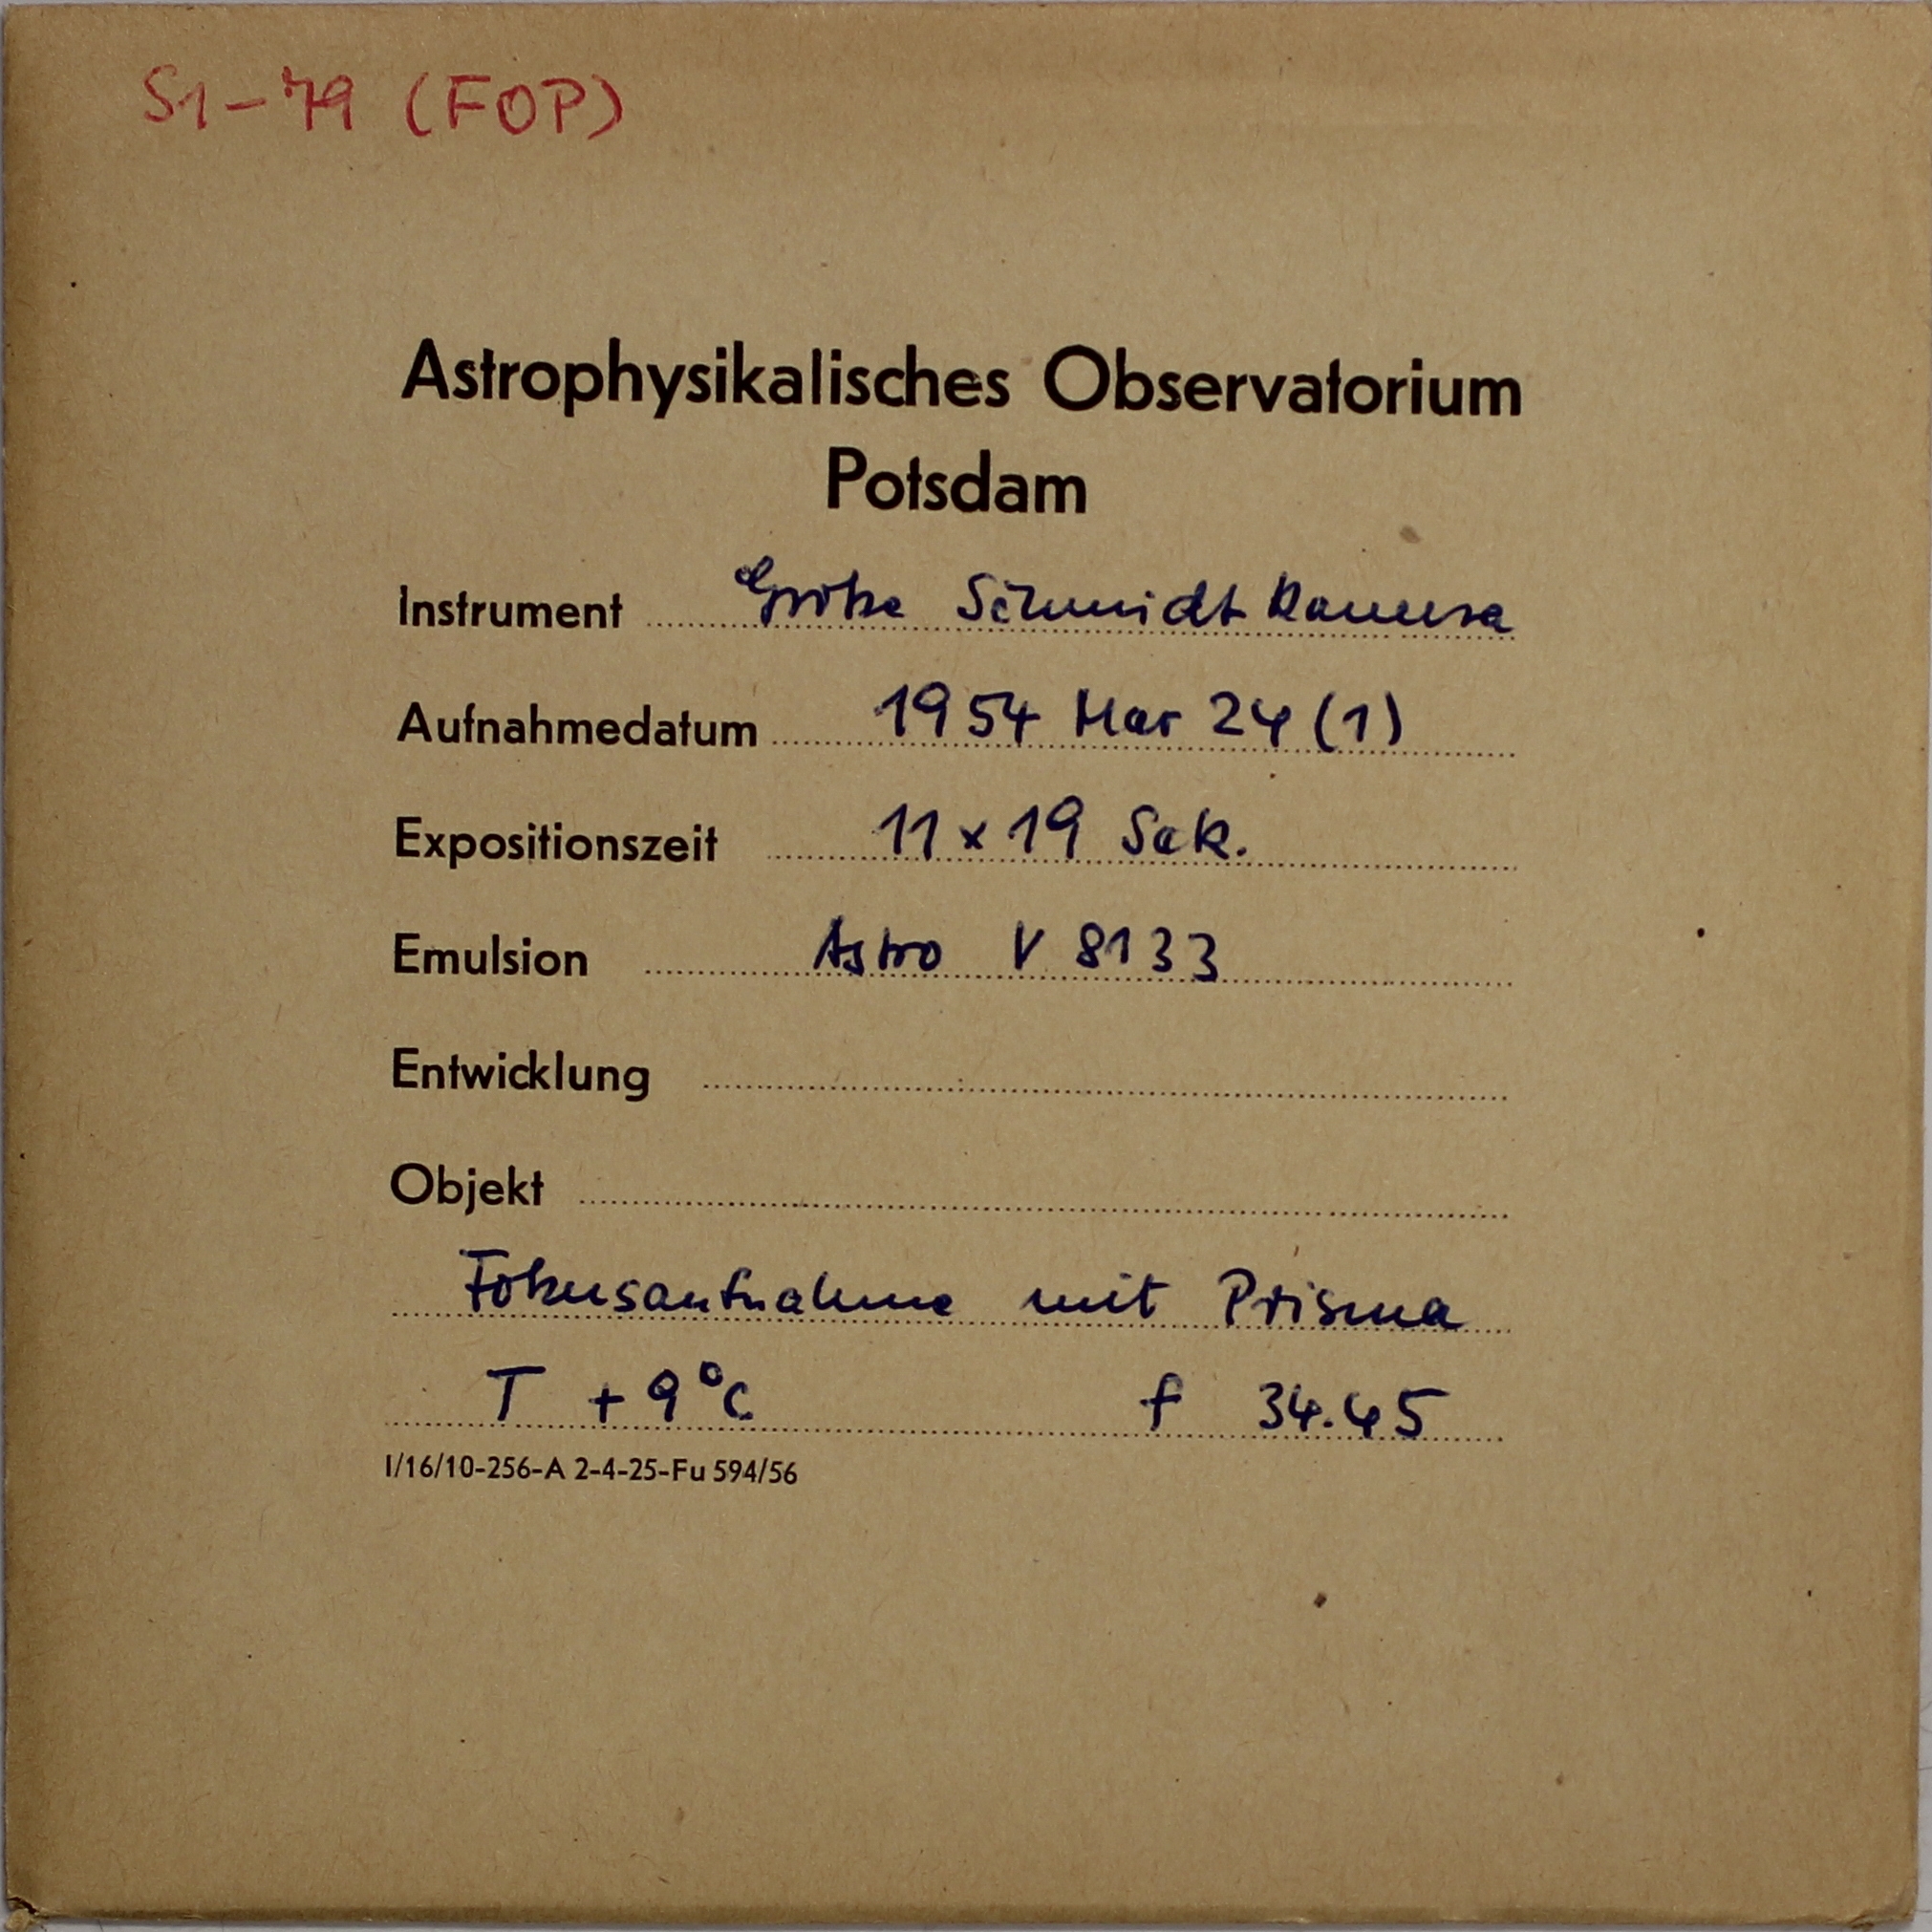 S1-79 (FOP)
Astrophysikalisches Observatorium
Potsdam
Instrument Große Schmidt Kamera
Aufnahmedatum 1954 Mar 24 (1)
Expositionszeit 11 x 19 Sek.
Emulsion Astro V 8133
Entwicklung
Objekt
Fokusaufnahme mit Prisma
T +9°C f 34.45
I/16/10-256-A 2-4-25-Fu 594/56